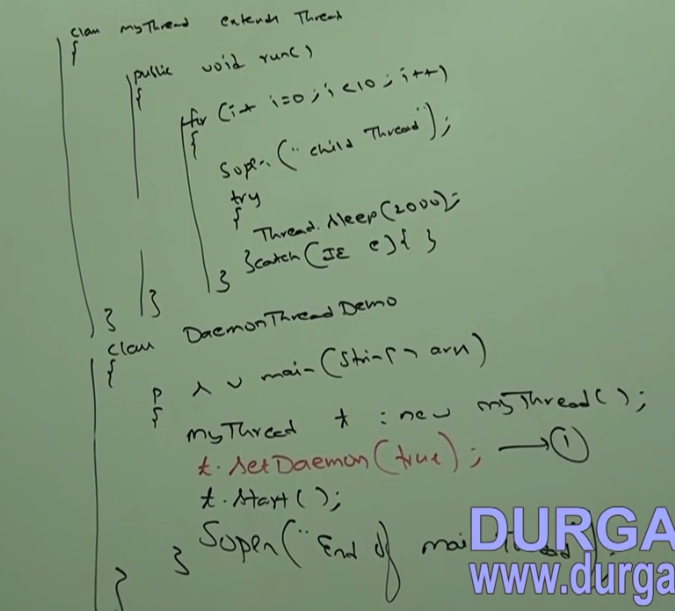 class myThread extends Thread
{
public void run()
{
for (int i=0; i<10; i++)
{
Sopen("child Thread");
try
{
Thread.sleep(2000);
}catch(IE e){ }
}
}
}
class DaemonThreadDemo
{
P s v main(String[] args)
{
myThread t = new myThread();
t.setDaemon(true); → ①
t.start();
Sopen("End of main Thread");
}
}
DURGA
www.durga